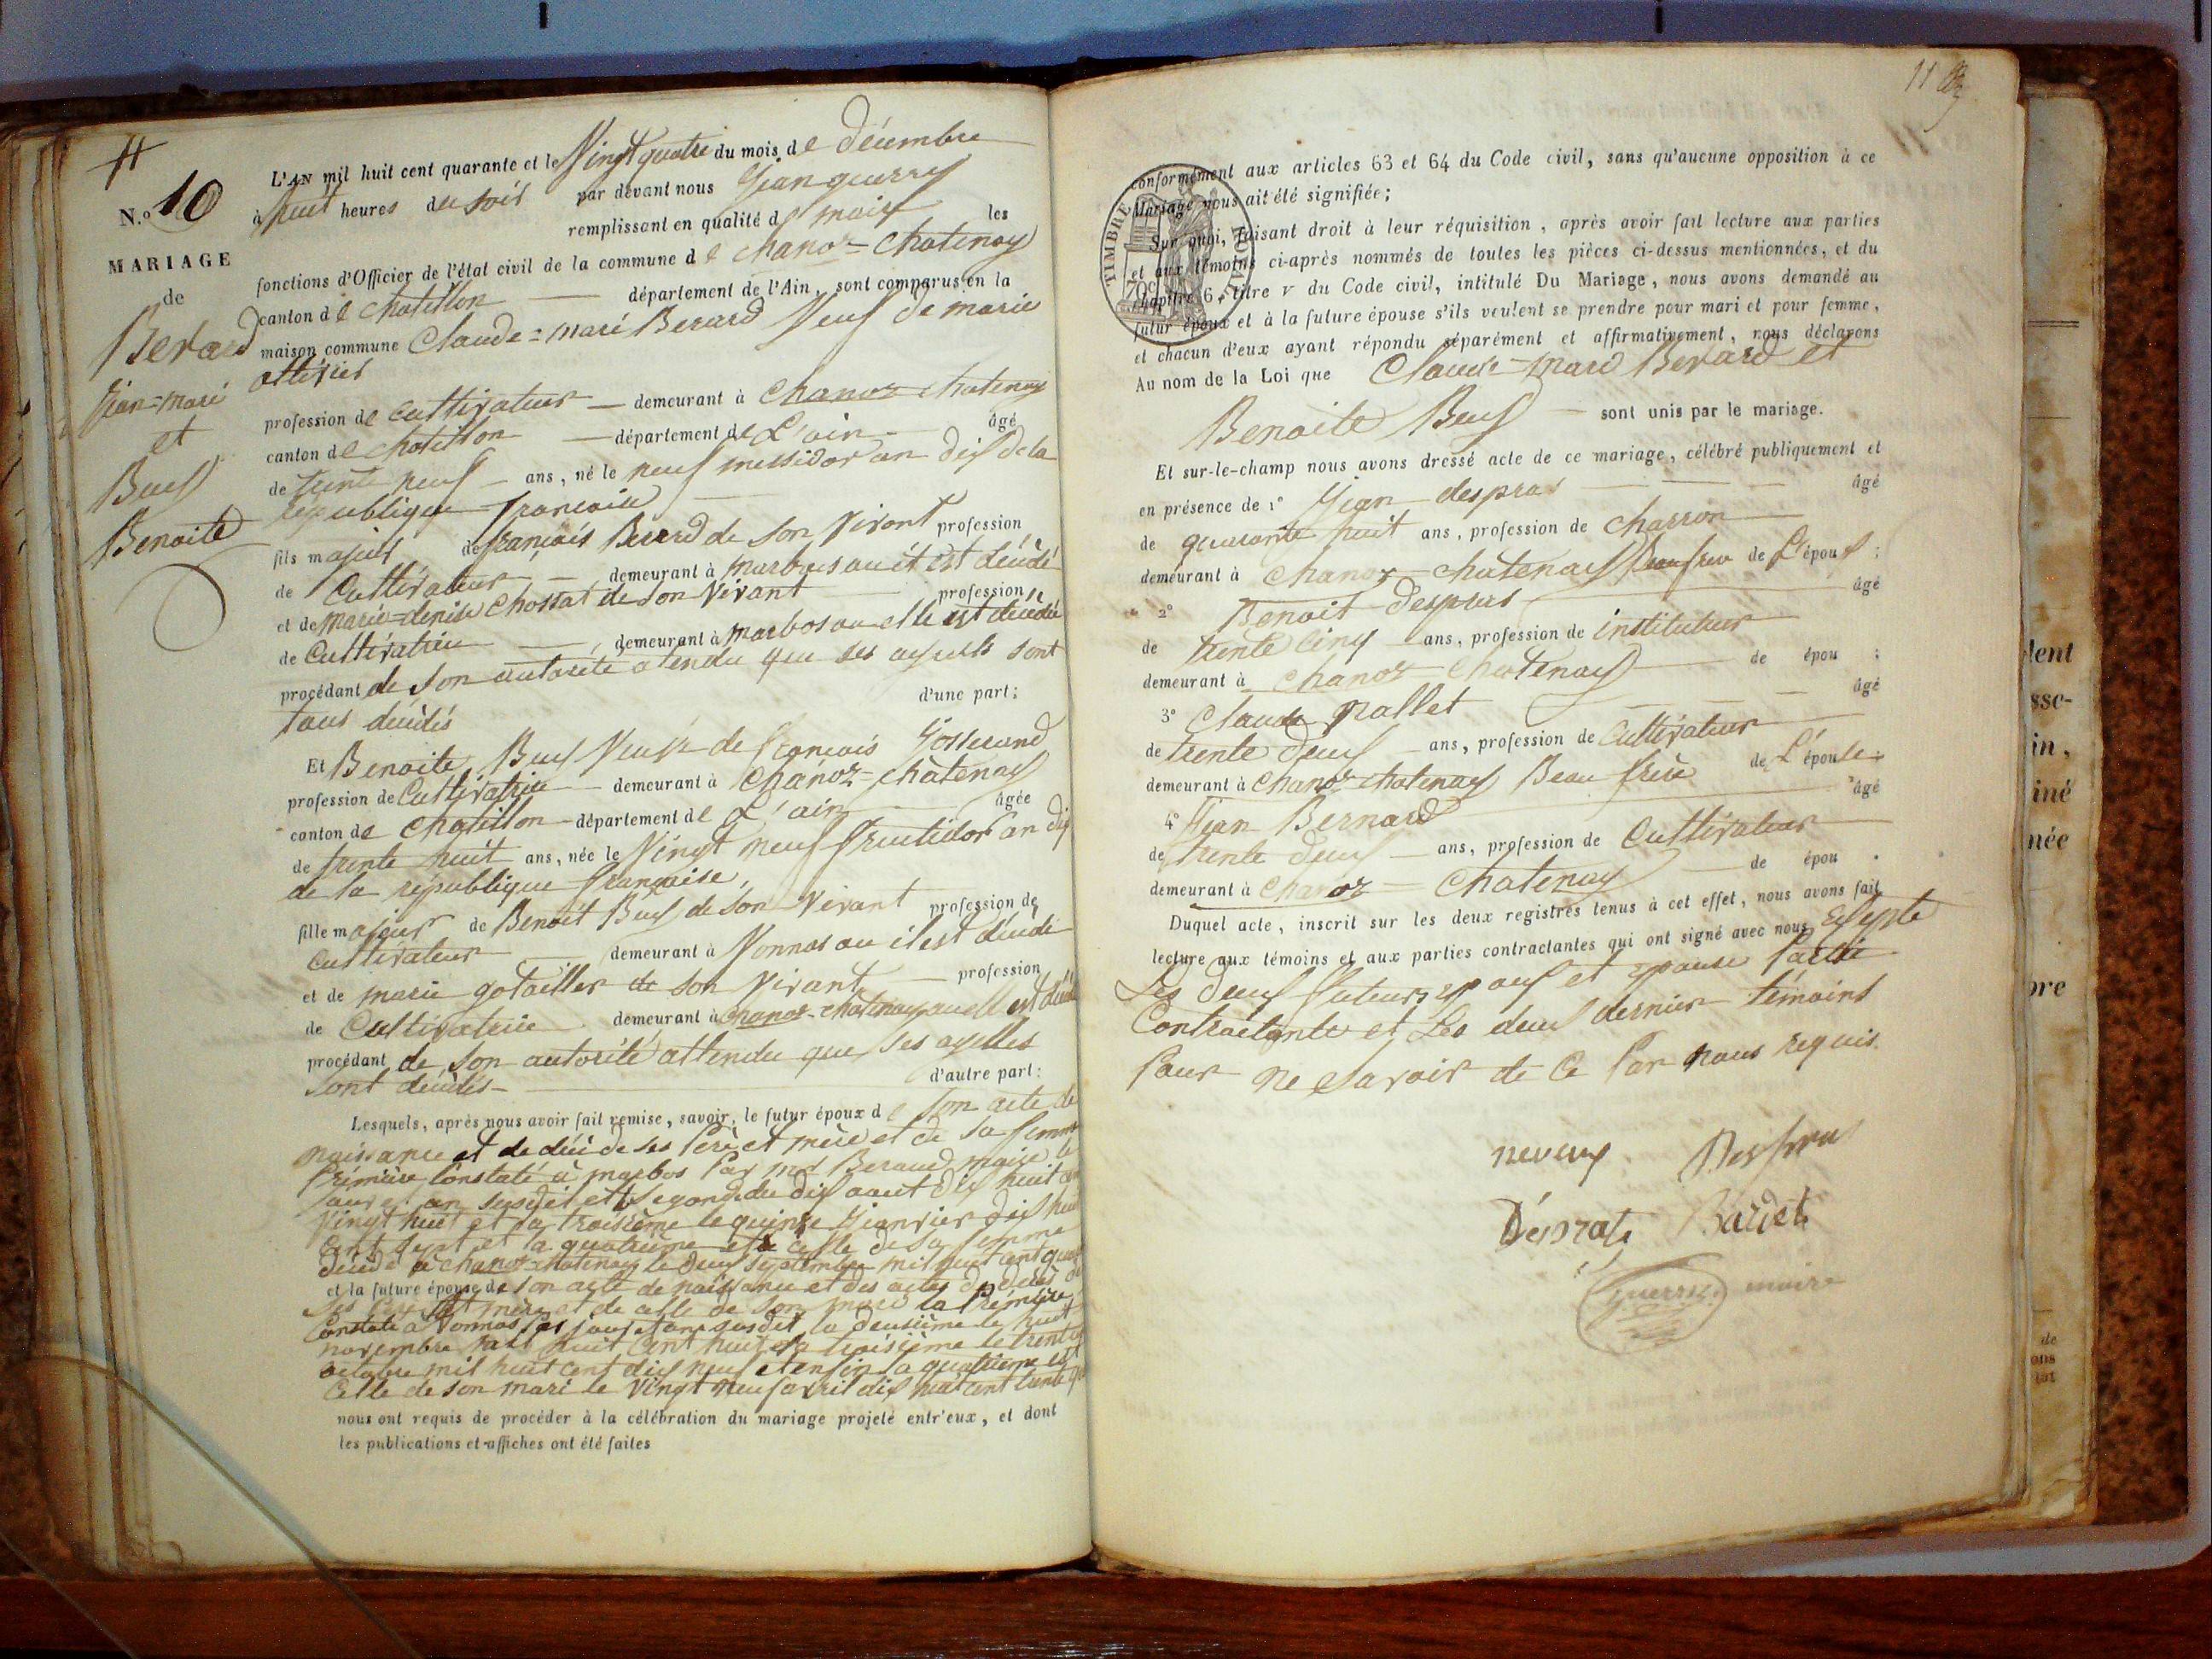 N.º 10
MARIAGE
de
Berard
Jean=marí
et
Beuf
Benoite
L'AN mil huit cent quarante et le Vingt quatre du mois de décembre
à huit heures du soir par devant nous Jean guerry
remplissant en qualité de maire les
fonctions d'Officier de l'état civil de la commune de chanoz=chatenay
canton de chatillon département de l'Ain, sont comparus en la
maison commune Claude=mari Berard Veuf de marie
profession de Cultivateur demeurant à Chanoz chatenay
canton de chatillon département de L'ain âgé
de trente neuf ans, né le neuf messidor an dix de la
république francaise
fils majeur de françois Berard de son Vivant profession
de Cultivateur demeurant à marbos où il est décédé
et de marie=denise Chossat de son Vivant profession
de Cultivatrice demeurant à marbos ou elle est décédée
procédant de son autorité atendu que ses ayeuls sont
tous décédés d'une part;
Et Benoite Beuf Veuve de francois Josserand
profession de Cultivatrice demeurant à Chanoz=châtenay
canton de Chatillon département de L'ain âgée
de trente huit ans, née le Vingt neuf fructidor an dix
de la république française,
fille majeur de Benoit Beuf de son Vivant profession de
Cultivateur demeurant à Vonnas ou il est décédé
et de marie gotailler de son Vivant profession
de Cultivatrice demeurant à Chanoz-chatenay ou elle est décédé
procédant de son autorité attendu que ses ayelles
sont décédés d'autre part:
Lesquels, après nous avoir fait remise, savoir, le futur époux de son acte de
naissance et de décè de ses Perè et mère et de sa femme
Prémière Constaté à marbos Par mr Beraud maire le
jour et an susdit et segonde du dix aout dix huit cent
Vingt huit et la troisième le quinze Janvier dix huit
Cent sept et la quatrième celle de sa femme
décédé à chanoz chatenay le deux septembre mil huit cent quar
et la future épouse de son acte de naissance et des actes de décès de
ses Père et mère et de celle de son mari la Prémière
Constaté à Vonnas les jour et an susdit la deusième le huit
novembre mil huit cent huit la troisième le trente
octobre mil huit cent dix neuf et enfin la quatrième est
Celle de son mari le Vingt neuf avril dix huit cent trente
nous ont requis de procéder à la célébration du mariage projeté entr'eux, et dont
les publications et affiches ont été faites
11
conformément aux articles 63 et 64 du Code civil, sans qu'aucune opposition à ce
Mariage nous ait été signifiée;
Sur quoi, faisant droit à leur réquisition, après avoir fait lecture aux parties
et aux témoins ci-après nommés de toutes les pièces ci-dessus mentionnées, et du
chapitre 6, titre v du Code civil, intitulé Du Mariage, nous avons demandé au
futur époux et à la future épouse s'ils veulent se prendre pour mari et pour femme,
et chacun d'eux ayant répondu séparément et affirmativement, nous déclarons
Au nom de la Loi que Claude=mari Berard et
Benoite Beuf sont unis par le mariage.
TIMBRE
70c
Et sur-le-champ nous avons dressé acte de ce mariage, célébré publiquement et
en présence de 1º Jean despras âgé
de quarante huit ans, profession de charron
demeurant à Chanoz-châtenay Beaufrere de L'épous ;
2º Benoit despras âgé
de trente cinq ans, profession de instituteur
demeurant à Chanoz Chatenay de épou ;
3º Claude nallet âgé
de trente deux ans, profession de Cultivateur
demeurant à Chanoz chatenay Beau frère de L'épouse.
4º Jean Bernard âgé
de trente deux ans, profession de Cultivateur
demeurant à Chanoz=Chatenay de épou .
Duquel acte, inscrit sur les deux registres tenus à cet effet, nous avons fait
lecture aux témoins et aux parties contractantes qui ont signé avec nous Exepté
Les deux futurs epoux et epouse Partie
Contractante et Les deux dernier témoins
Pour ne savoir de Ce Par nous requis.
neveux Despras
Désprats Bardet
guerry maire
lent
sse-
in,
iné
née
ore
de
ons